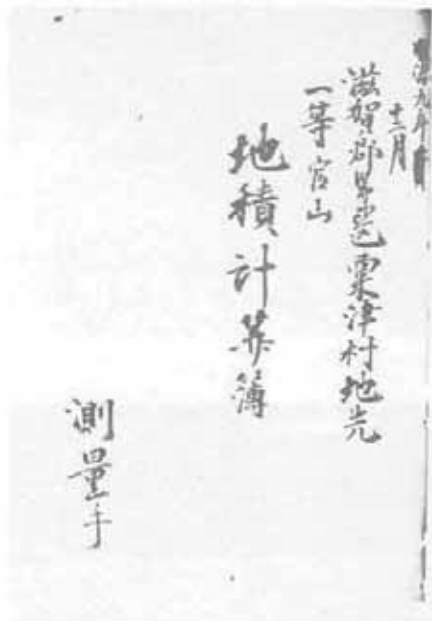 明治九年
十二月
滋賀郡第 区粟津村地先
一等官山
地積計算簿
測量手